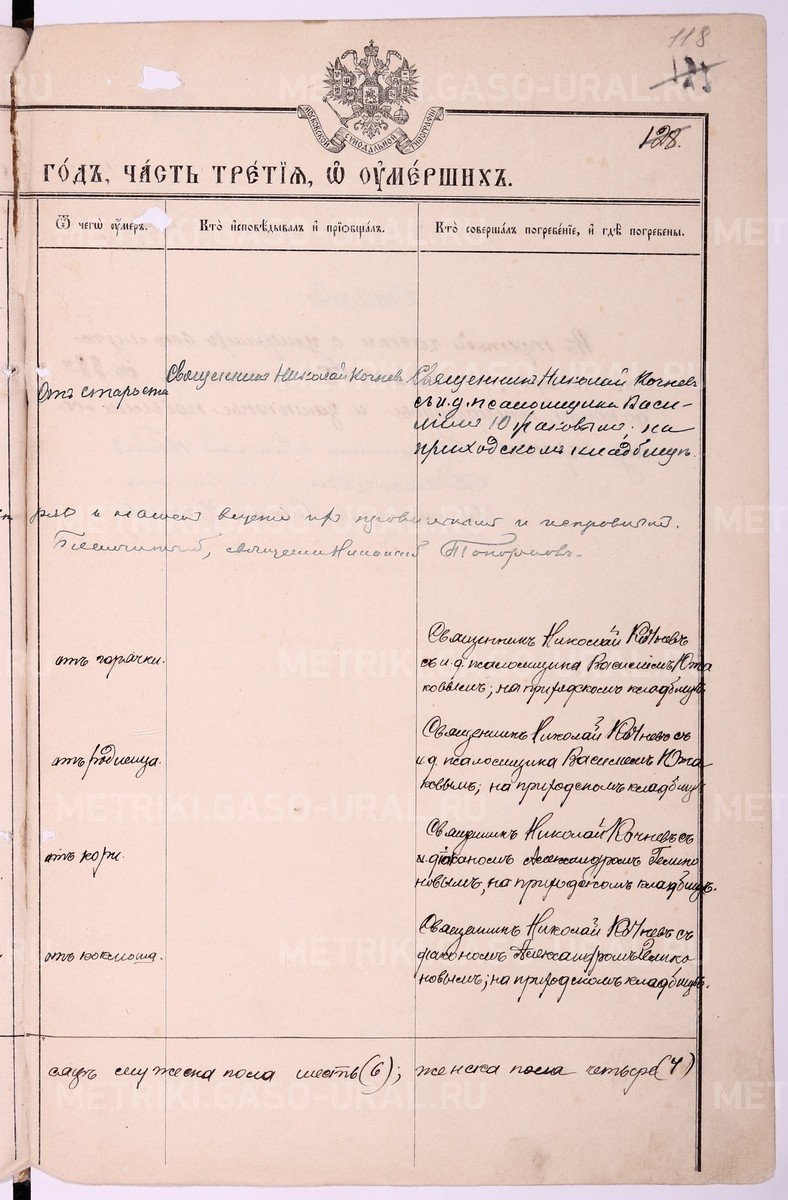 118
125
128.
МОСКОВСКОЙ СѴНОДАЛЬНОЙ ТИПОГРАФІИ
ГО́ДЪ, ЧА́СТЬ ТРЕ́ТІѦ, Ѿ ОУ҆МЕ́РШИХЪ.
Ѿ чегѡ̀ оу҆́меръ.
Кто̀ и҆сповѣ́дывалъ и҆ прїѡбща́лъ.
Кто̀ соверша́лъ погребе́нїе, и҆ гдѣ̀ погребены.
Отъ старости
Священникъ Николай Кочневъ
Священникъ Николай Кочнев
съ и. д. псаломщика Васи-
ліемъ Ютаковымъ; на
приходскомъ кладбищѣ.
и
и исправный.
Благочинный, священникъ Николай Топорковъ.
отъ горячки.
Священникъ Николай Кочневъ
съ и д. псаломщика Василіемъ Юта
ковымъ; на приходскомъ кладбищѣ
отъ родимца.
Священникъ Николай Кочневъ съ
и д. псаломщика Василіемъ Юта
ковымъ; на приходскомъ кладбищѣ
отъ кори.
Священникъ Николай Кочневъ съ
діакономъ Александромъ
новымъ; на приходскомъ кладбищѣ.
отъ коклюша.
Священникъ Николай Кочневъ съ
діакономъ Александромъ
новымъ; на приходскомъ кладбищѣ.
сяцъ мужеска пола шесть (6); женска пола четыре (4)
METRIKI.GASO-URAL.RU